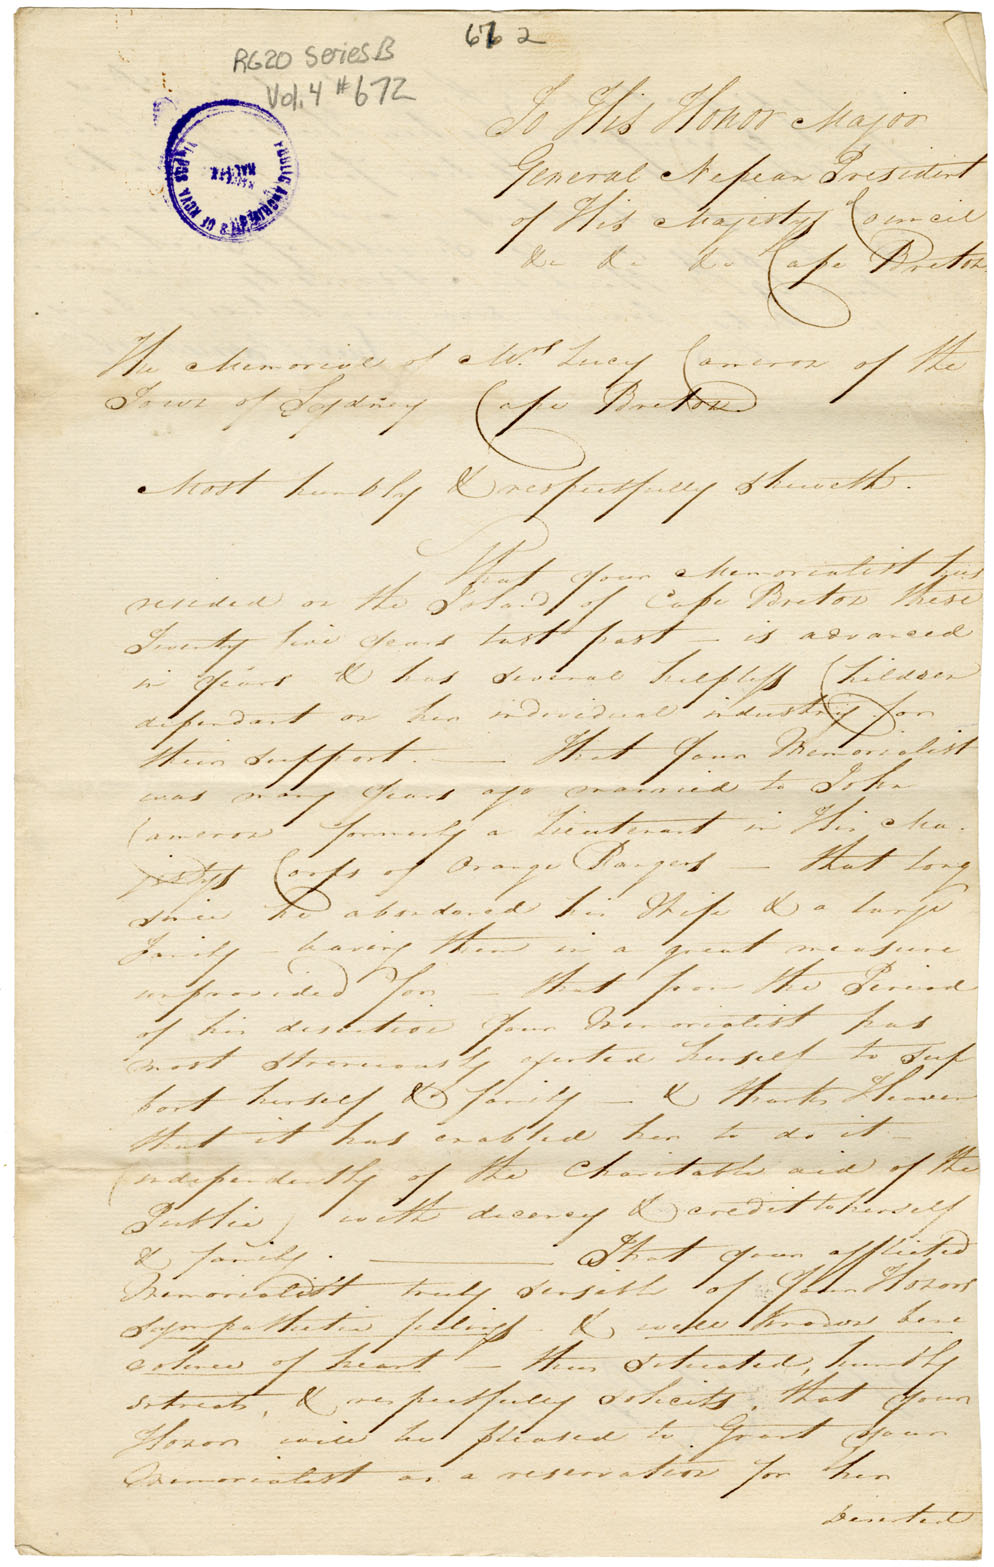 672
RG20 Series B
Vol. 4 #672
PUBLIC ARCHIVES OF NOVA SCOTIA
HALIFAX
To His Honor Major
General Nepean President
of His Majestys Council
&c &c &c Cape Breton
The Memorial of Mrs. Lucy Cameron of the
Town of Sydney Cape Breton
Most humbly & respectfully sheweth.
That your Memorialist has
resided on the Island of Cape Breton these
Twenty five years last past – is advanced
in years & has several helpless Children
dependant on her individual industry for
their support. — That your Memorialist
was many years ago married to John
Cameron formerly a Lieutenant in His Ma-
jestys Corps of Orange Rangers – that long
since he abandoned his Wife & a large
family – leaving them in a great measure
unprovided for – that from the Period
of his desertion your Memorialist has
most strenuously exerted herself to sup
port herself & family – & thanks Heaven
that it has enabled her to do it –
(independently of the Charitable aid of the
Public) with decency & credit to herself
& family. — That your afflicted
Memorialist truly sensible of Your Honors
sympathetic feelings & well known bene
volence of heart – thus situated, humbly
intreats, & respectfully solicits, that your
Honor will be pleased to Grant your
Memorialist as a reservation for her
deserted